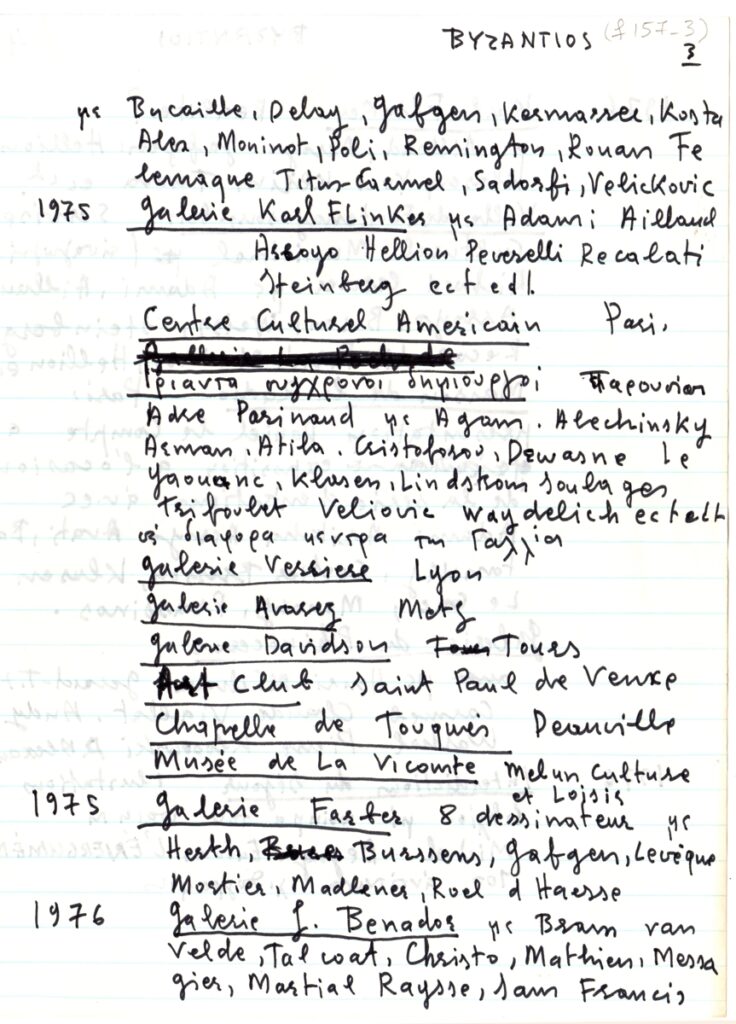 BYZANTIOS (f 157-3)
3
με Bycaille, Delay, Gafgen, Kermarrec, Kosta
Alex, Moninot, Poli, Remington, Rouan Fe
lemaque Titus-Carmel, Sadorfi, Velickovic
1975 Galerie Karl FLinKer με Adami Aillaud
Arroyo Hellion Peverelli Recalati
Steinberg ectedl.
Centre Culturel Americain Pari.
Τριαντα συγχρονοι δημιουργοι Παρουσιαση
Adre Parinaud με Agam. Alechinsky
Arman, Atila. Cristoforou, Dewasne Le
Yaouanc, Klasen, Lindstrom soulages
Trifoulet Veliovic waydelich ectelt
σε διαφορα κεντρα τη Γαλλία
Galerie Verriere Lyon
Galerie Avarez Metz
Galerie Davidson Tours
Art Club Saint Paul de Vence
Chapelle de Touques Deauville
Musée de La Vicomte Melun Culture
et Loisis
1975 Galerie Farber 8 dessinateur με
Herth, Burssens, Gafgen, Levêque
Mortier, Madlener, Roel d Haesse
1976 Galerie J. Benador με Bram van
Velde, Tal coat, Christo, Mathieu, Messa
gier, Martial Raysse, Sam Francis